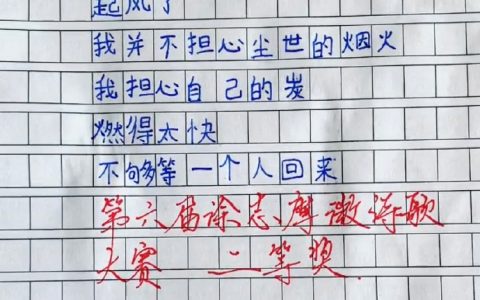 起风了
我并不担心尘世的烟火
我担心自己的炭
燃得太快
不够等一个人回来
第六届徐志摩微诗歌
大赛 二等奖